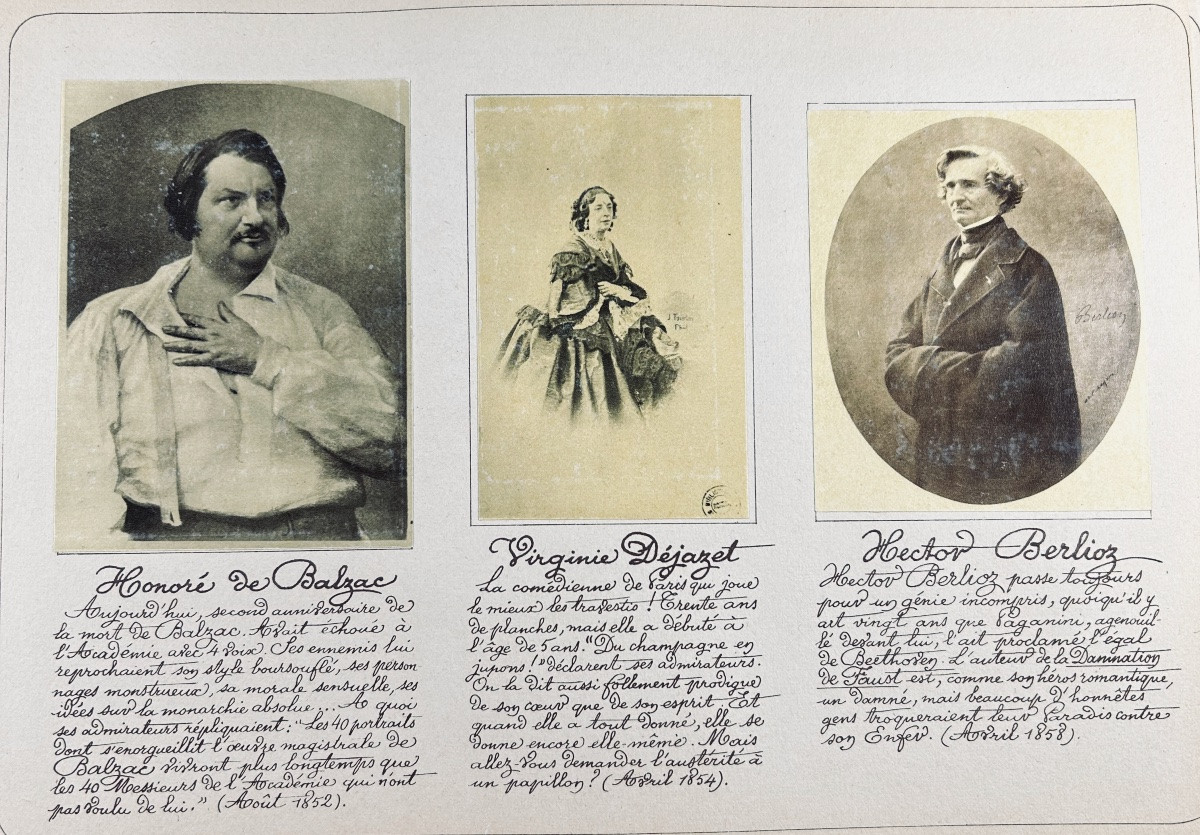 Honoré de Balzac
Aujourd'hui, second anniversaire de
la mort de Balzac. Avait échoué à
l'Académie avec 4 voix. Ses ennemis lui
reprochaient son style boursouflé, ses person-
nages monstrueux, sa morale sensuelle, ses
idées sur la monarchie absolue... A quoi
ses admirateurs répliquaient: "Les 40 portraits
dont s'enorgueillit l'œuvre magistrale de
Balzac vivront plus longtemps que
les 40 Messieurs de l'Académie qui n'ont
pas voulu de lui." (Août 1852).
Virginie Déjazet
La comédienne de Paris qui joue
le mieux les travestis ! Trente ans
de planches, mais elle a débuté à
l'âge de 5 ans. "Du champagne en
jupons !" déclarent ses admirateurs.
On la dit aussi follement prodigue
de son cœur que de son esprit. Et
quand elle a tout donné, elle se
donne encore elle-même. Mais
allez-vous demander l'austérité à
un papillon ? (Avril 1854).
Hector Berlioz
Hector Berlioz passe toujours
pour un génie incompris, quoiqu'il y
ait vingt ans que Paganini, agenouil-
lé devant lui, l'ait proclamé l'égal
de Beethoven. L'auteur de la Damnation
de Faust est, comme son héros romantique,
un damné, mais beaucoup d'honnêtes
gens troqueraient leur Paradis contre
son Enfer. (Avril 1858).
Berlioz